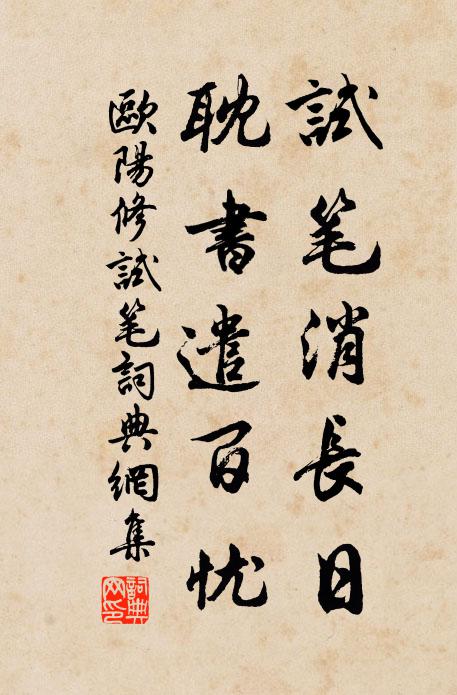 試笔消長日
耽書遣百忧
歐陽修試笔詞典網集
詞典网印